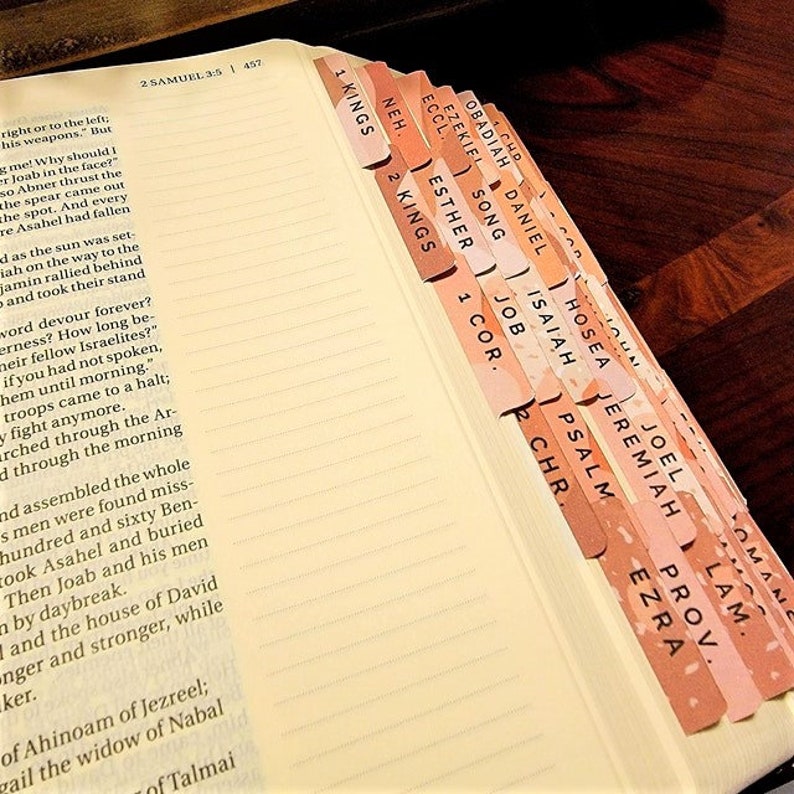 2 SAMUEL 3:5 | 457
right or to the left;
his weapons." But
g me! Why should I
er Joab in the face?"
so Abner thrust the
the spear came out
the spot. And every
re Asahel had fallen
d as the sun was set-
iah on the way to the
njamin rallied behind
p and took their stand
word devour forever?
erness? How long be-
heir fellow Israelites?"
if you had not spoken,
them until morning."
troops came to a halt;
y fight anymore.
arched through the Ar-
d through the morning
nd assembled the whole
s men were found miss-
hundred and sixty Ben-
took Asahel and buried
Then Joab and his men
n by daybreak.
l and the house of David
onger and stronger, while
aker.
of Ahinoam of Jezreel;
gail the widow of Nabal
of Talmai
1 KINGS
2 KINGS
1 COR.
2 CHR.
EZRA
NEH.
ESTHER
JOB
PSALM
PROV.
ECCL.
SONG
ISAIAH
JEREMIAH
LAM.
EZEKIEL
DANIEL
HOSEA
JOEL
OBADIAH
1 CHR.
COR
JOHN
OMANS